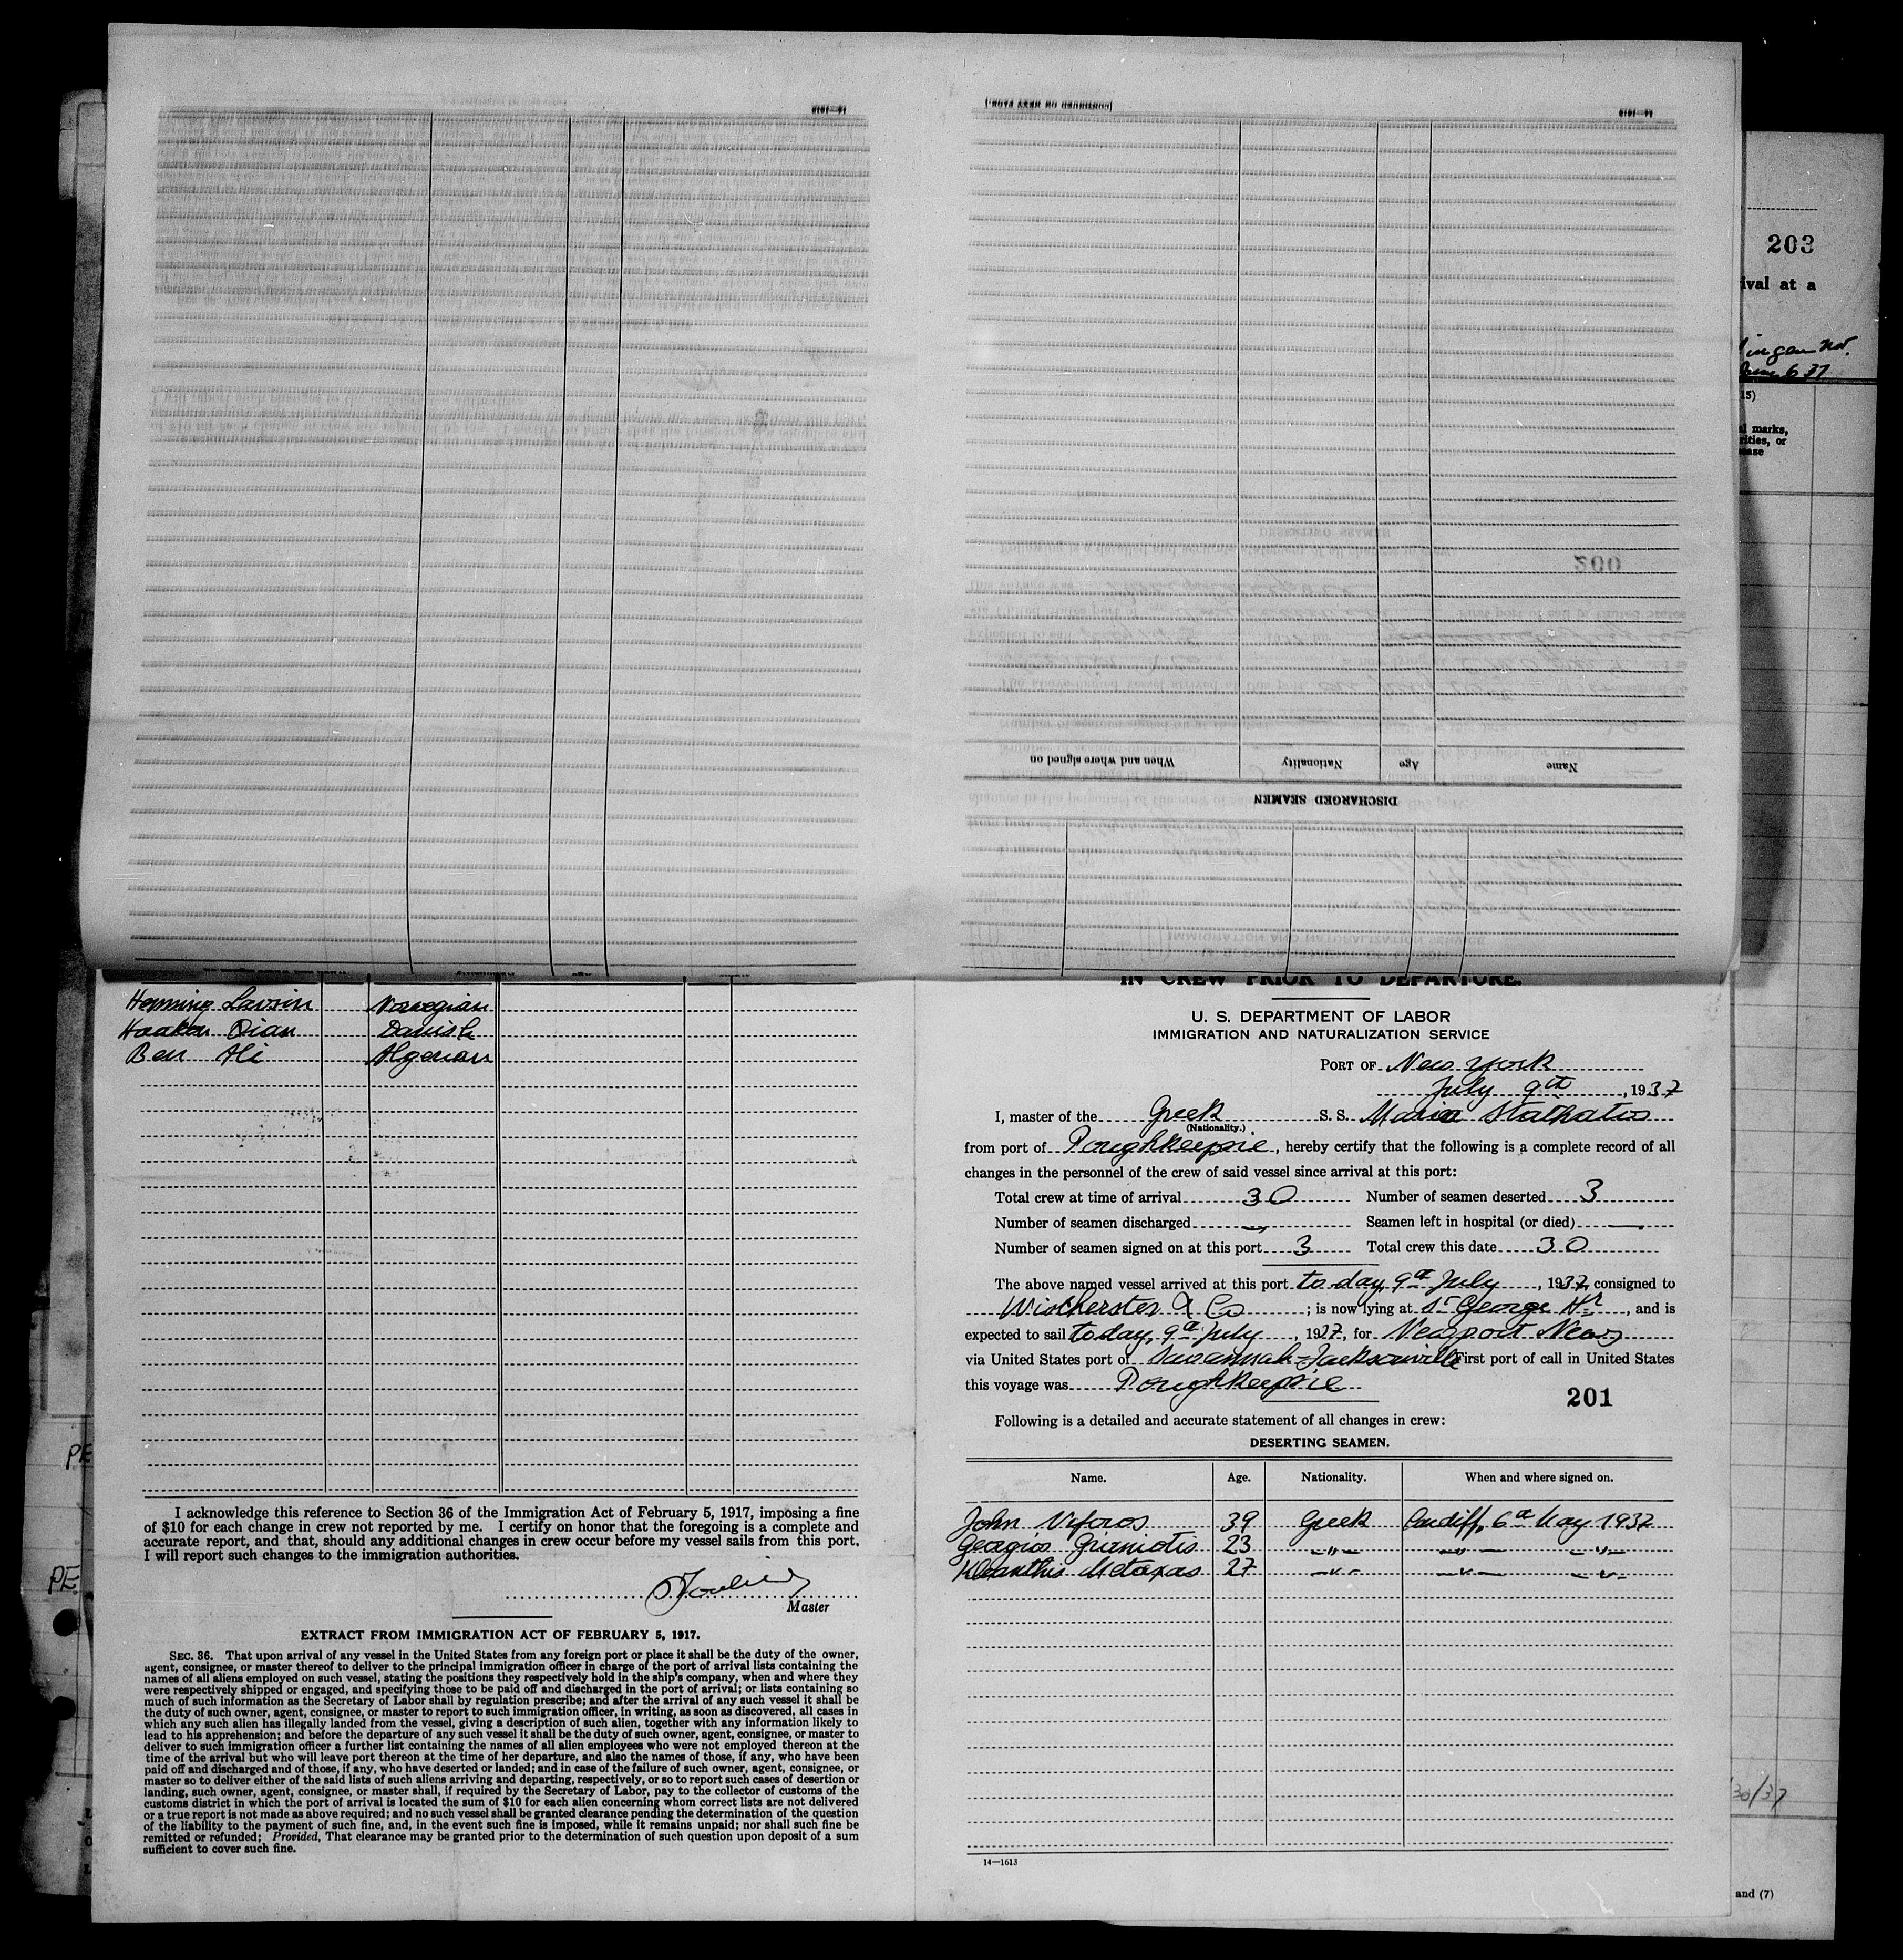 14—1613
[CONTINUED ON NEXT PAGE.]
14—1613
203
ival at a
June 6 37
15)
al marks,
rities, or
sease
200
When and where signed on
Nationality
Age
Name
DISCHARGED SEAMEN
IMMIGRATION AND NATURALIZATION SERVICE
IN CREW PRIOR TO DEPARTURE.
Henning Larsin Norwegian
Haakon Dian Danish
Ben Ali Algerian
U. S. DEPARTMENT OF LABOR
IMMIGRATION AND NATURALIZATION SERVICE
PORT OF New York
July 9th, 1937
I, master of the Greek S. S. Maria Stathatos
(Nationality.)
from port of Poughkeepsie, hereby certify that the following is a complete record of all
changes in the personnel of the crew of said vessel since arrival at this port:
Total crew at time of arrival 30 Number of seamen deserted 3
Number of seamen discharged — Seamen left in hospital (or died) —
Number of seamen signed on at this port 3 Total crew this date 30
The above named vessel arrived at this port to day, 9th July, 1937, consigned to
& Co; is now lying at St George Hr, and is
expected to sail today, 9th July, 1937, for Newport News
via United States port of Savannah-Jacksonville First port of call in United States
this voyage was Poughkeepsie
201
Following is a detailed and accurate statement of all changes in crew:
DESERTING SEAMEN.
Name. Age. Nationality. When and where signed on.
John Viforos 39 Greek Cardiff, 6th May 1937
Georgios Giamotis 23 —"— —"— —"—
Kleanthis Metaxas 27 —"— —"— —"—
14—1613
I acknowledge this reference to Section 36 of the Immigration Act of February 5, 1917, imposing a fine
of $10 for each change in crew not reported by me. I certify on honor that the foregoing is a complete and
accurate report, and that, should any additional changes in crew occur before my vessel sails from this port,
I will report such changes to the immigration authorities.
Master
EXTRACT FROM IMMIGRATION ACT OF FEBRUARY 5, 1917.
SEC. 36. That upon arrival of any vessel in the United States from any foreign port or place it shall be the duty of the owner,
agent, consignee, or master thereof to deliver to the principal immigration officer in charge of the port of arrival lists containing the
names of all aliens employed on such vessel, stating the positions they respectively hold in the ship's company, when and where they
were respectively shipped or engaged, and specifying those to be paid off and discharged in the port of arrival; or lists containing so
much of such information as the Secretary of Labor shall by regulation prescribe; and after the arrival of any such vessel it shall be
the duty of such owner, agent, consignee, or master to report to such immigration officer, in writing, as soon as discovered, all cases in
which any such alien has illegally landed from the vessel, giving a description of such alien, together with any information likely to
lead to his apprehension; and before the departure of any such vessel it shall be the duty of such owner, agent, consignee, or master to
deliver to such immigration officer a further list containing the names of all alien employees who were not employed thereon at the
time of the arrival but who will leave port thereon at the time of her departure, and also the names of those, if any, who have been
paid off and discharged and of those, if any, who have deserted or landed; and in case of the failure of such owner, agent, consignee, or
master so to deliver either of the said lists of such aliens arriving and departing, respectively, or so to report such cases of desertion or
landing, such owner, agent, consignee, or master shall, if required by the Secretary of Labor, pay to the collector of customs of the
customs district in which the port of arrival is located the sum of $10 for each alien concerning whom correct lists are not delivered
or a true report is not made as above required; and no such vessel shall be granted clearance pending the determination of the question
of the liability to the payment of such fine, and, in the event such fine is imposed, while it remains unpaid; nor shall such fine be
remitted or refunded; Provided, That clearance may be granted prior to the determination of such question upon deposit of a sum
sufficient to cover such fine.
PE
PE
30/37
and (7)